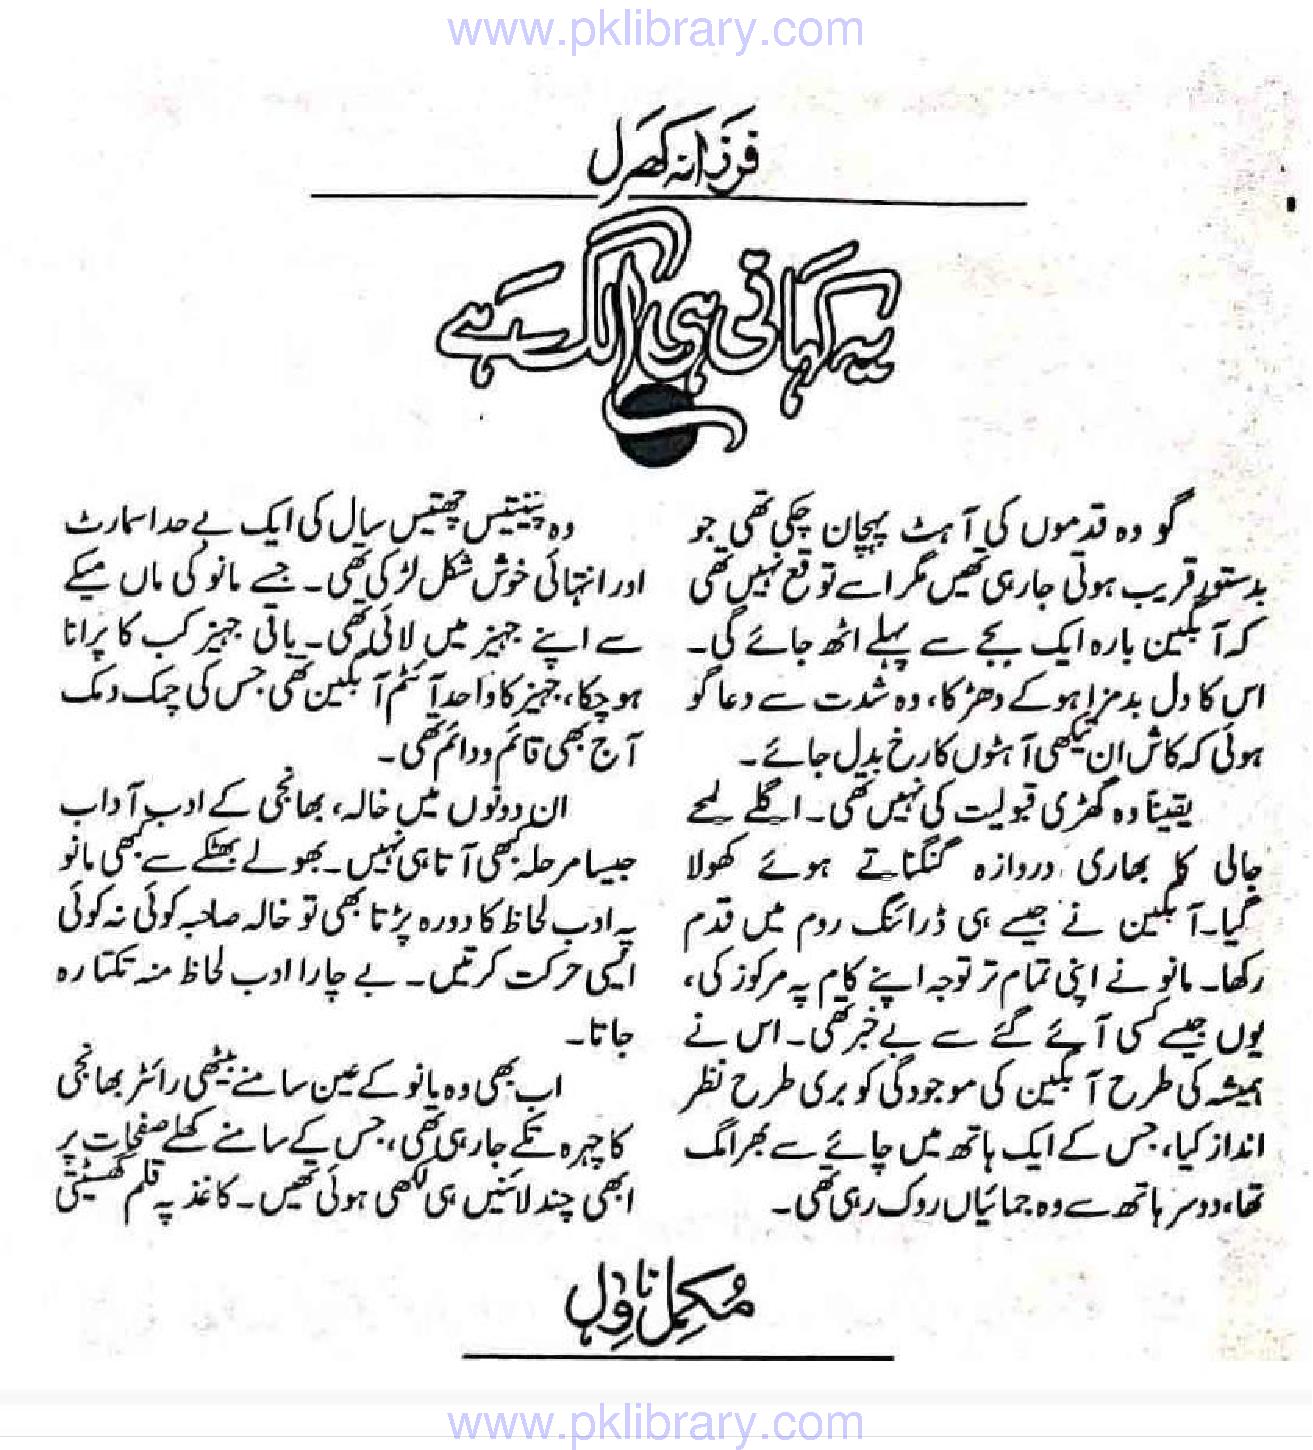 www.pklibrary.com
فرزانہ کھرل
یہ کہانی ہی الگ ہے
گو وہ قدموں کی آہٹ پہچان چکی تھی جو
بدستور قریب ہوتی جارہی تھیں مگر اسے توقع نہیں تھی
کہ آبگین بارہ ایک بجے سے پہلے اٹھ جائے گی۔
اس کا دل بدمزا ہوکے دھڑکا، وہ شدت سے دعا گو
ہوئی کہ کاش ان دیکھی آہٹوں کا رخ بدل جائے۔
یقیناً وہ گھڑی قبولیت کی نہیں تھی۔ اگلے لمحے
جالی کا بھاری دروازہ گنگناتے ہوئے کھولا
گیا۔ آبگین نے جیسے ہی ڈرائنگ روم میں قدم
رکھا۔ مانو نے اپنی تمام تر توجہ اپنے کام پہ مرکوز کی،
یوں جیسے کسی آئے گئے سے بے خبر تھی۔ اس نے
ہمیشہ کی طرح آبگین کی موجودگی کو بری طرح نظر
انداز کیا، جس کے ایک ہاتھ میں چائے سے بھرا مگ
تھا، دوسرے ہاتھ سے وہ جمائیاں روک رہی تھی۔
وہ پینتیس چھتیس سال کی ایک بے حد اسمارٹ
اور انتہائی خوش شکل لڑکی تھی۔ جسے مانو کی ماں میکے
سے اپنے جہیز میں لائی تھی۔ باقی جہیز کب کا پرانا
ہوچکا، جہیز کا واحد آئٹم آبگین تھی جس کی چمک دمک
آج بھی قائم و دائم تھی۔
ان دونوں میں خالہ، بھانجی کے ادب آداب
جیسا مرحلہ کبھی آتا ہی نہیں۔ بھولے بھٹکے سے کبھی مانو
پہ ادب لحاظ کا دورہ پڑتا بھی تو خالہ صاحبہ کوئی نہ کوئی
ایسی حرکت کرتیں۔ بے چارا ادب لحاظ منہ تکتا رہ
جاتا۔
اب بھی وہ مانو کے عین سامنے بیٹھی رائٹر بھانجی
کا چہرہ تکے جارہی تھی، جس کے سامنے کھلے صفحات پر
ابھی چند لائنیں ہی لکھی ہوئی تھیں۔ کاغذ پہ قلم گھسیٹتی
مکمل ناول
www.pklibrary.com